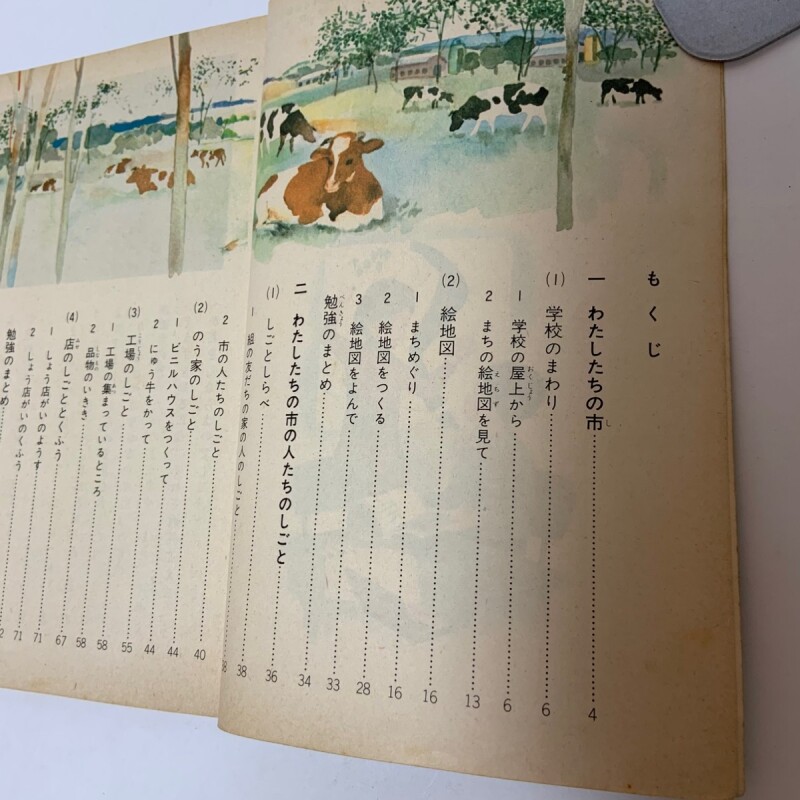 もくじ
一 わたしたちの市……4
(1) 学校のまわり……6
1 学校の屋上から……6
2 まちの絵地図を見て……13
(2) 絵地図……16
1 まちめぐり……16
2 絵地図をつくる……28
3 絵地図をよんで……33
勉強のまとめ……34
二 わたしたちの市の人たちのしごと……36
(1) しごとしらべ……38
1 組の友だちの家の人のしごと……
2 市の人たちのしごと……40
(2) のう家のしごと……44
1 ビニルハウスをつくって……44
2 にゅう牛をかって……55
(3) 工場のしごと……58
1 工場の集まっているところ……58
2 品物のいきき……67
(4) 店のしごととくふう……71
1 しょう店がいのようす……71
2 しょう店がいのくふう……
勉強のまとめ……